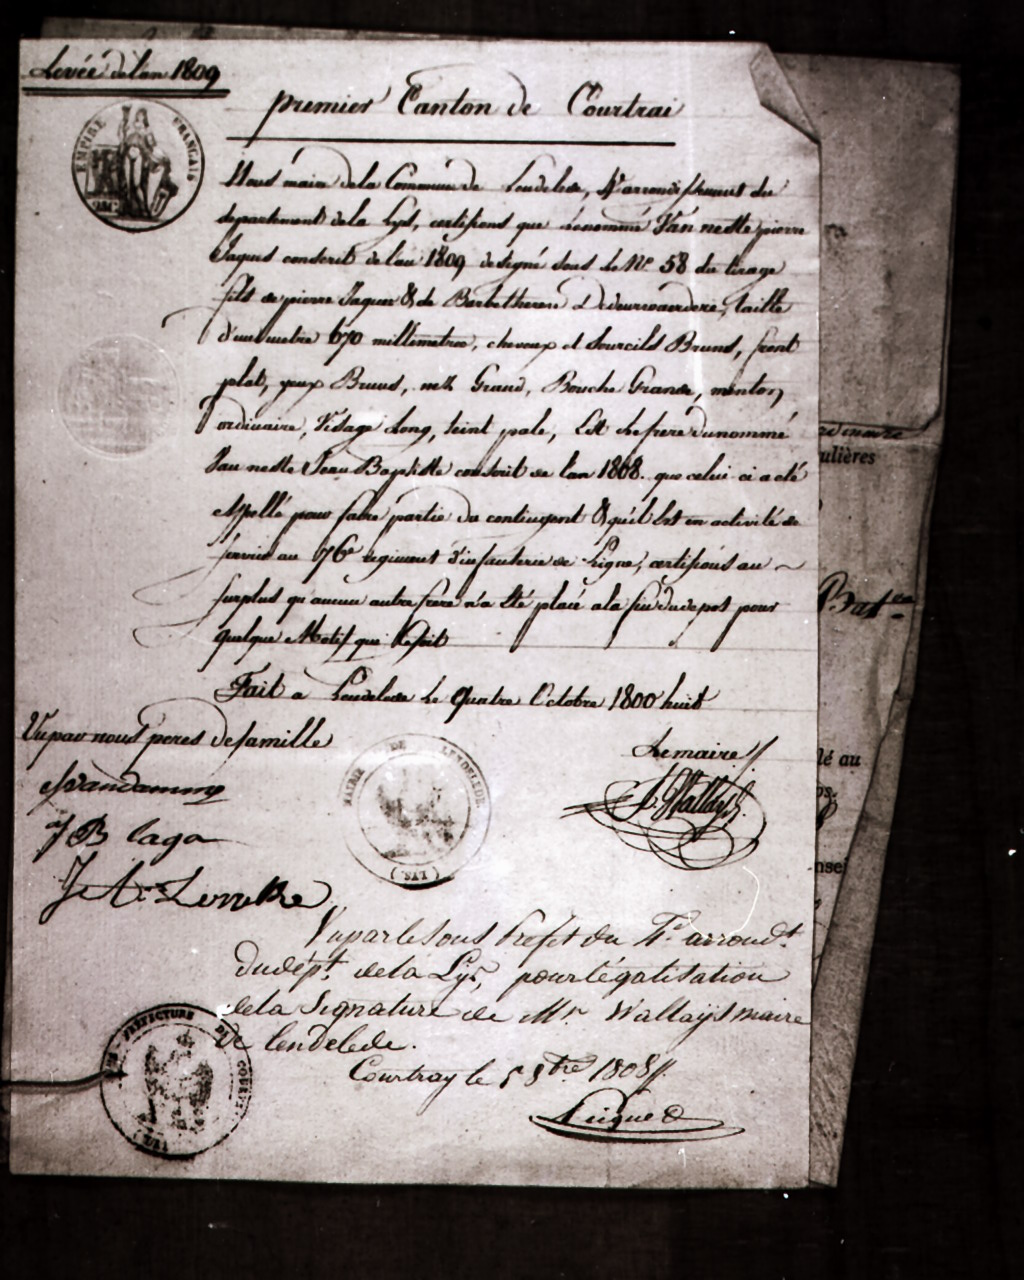 Levée de l'an 1809
premier Canton de Courtrai
EMPIRE FRANÇAIS
Nous maire de la Commune de Lendelede, arrondissement du
departement de la Lys, certifions que le nommé Van neste pierre
Jaques conscrit de l'an 1809 designé sous le Nº 58 du tirage
fils de pierre Jaques & de taille
d'un metre 670 millimetres, cheveux et Sourcils Bruns, front
plat, yeux Bruns, nez Grand, Bouche Grande, menton
ordinaire, Visage Long, teint pale, Est le frere du nommé
Van neste Jean Baptiste conscrit de l'an 1808. que celui-ci a eté
Appellé pour faire partie du contingent & qu'il Est en activité de
service au 76e regiment d'infanterie de Ligne, certifions au
surplus qu'aucun autre frere n'a Eté placé a la fin du depot pour
quelque Motif que ce soit
Fait a Lendelede le quatre Octobre 1800 huit
Vu par nous peres de famille
Le maire
MAIRIE DE LENDELEDE.
(LYS.)
Vandamme
J B Laga
Vu par le Sous Préfet du arrondt.
du dépt. de la Lys, pour légalisation
de la Signature de Mr Wallaÿs maire
de Lendelede.
Courtray le 5 8bre 1808
PREFECTURE DE COURT
(LYS)
ordinaire
ulières
Bapte
lé au
ps.
nsei